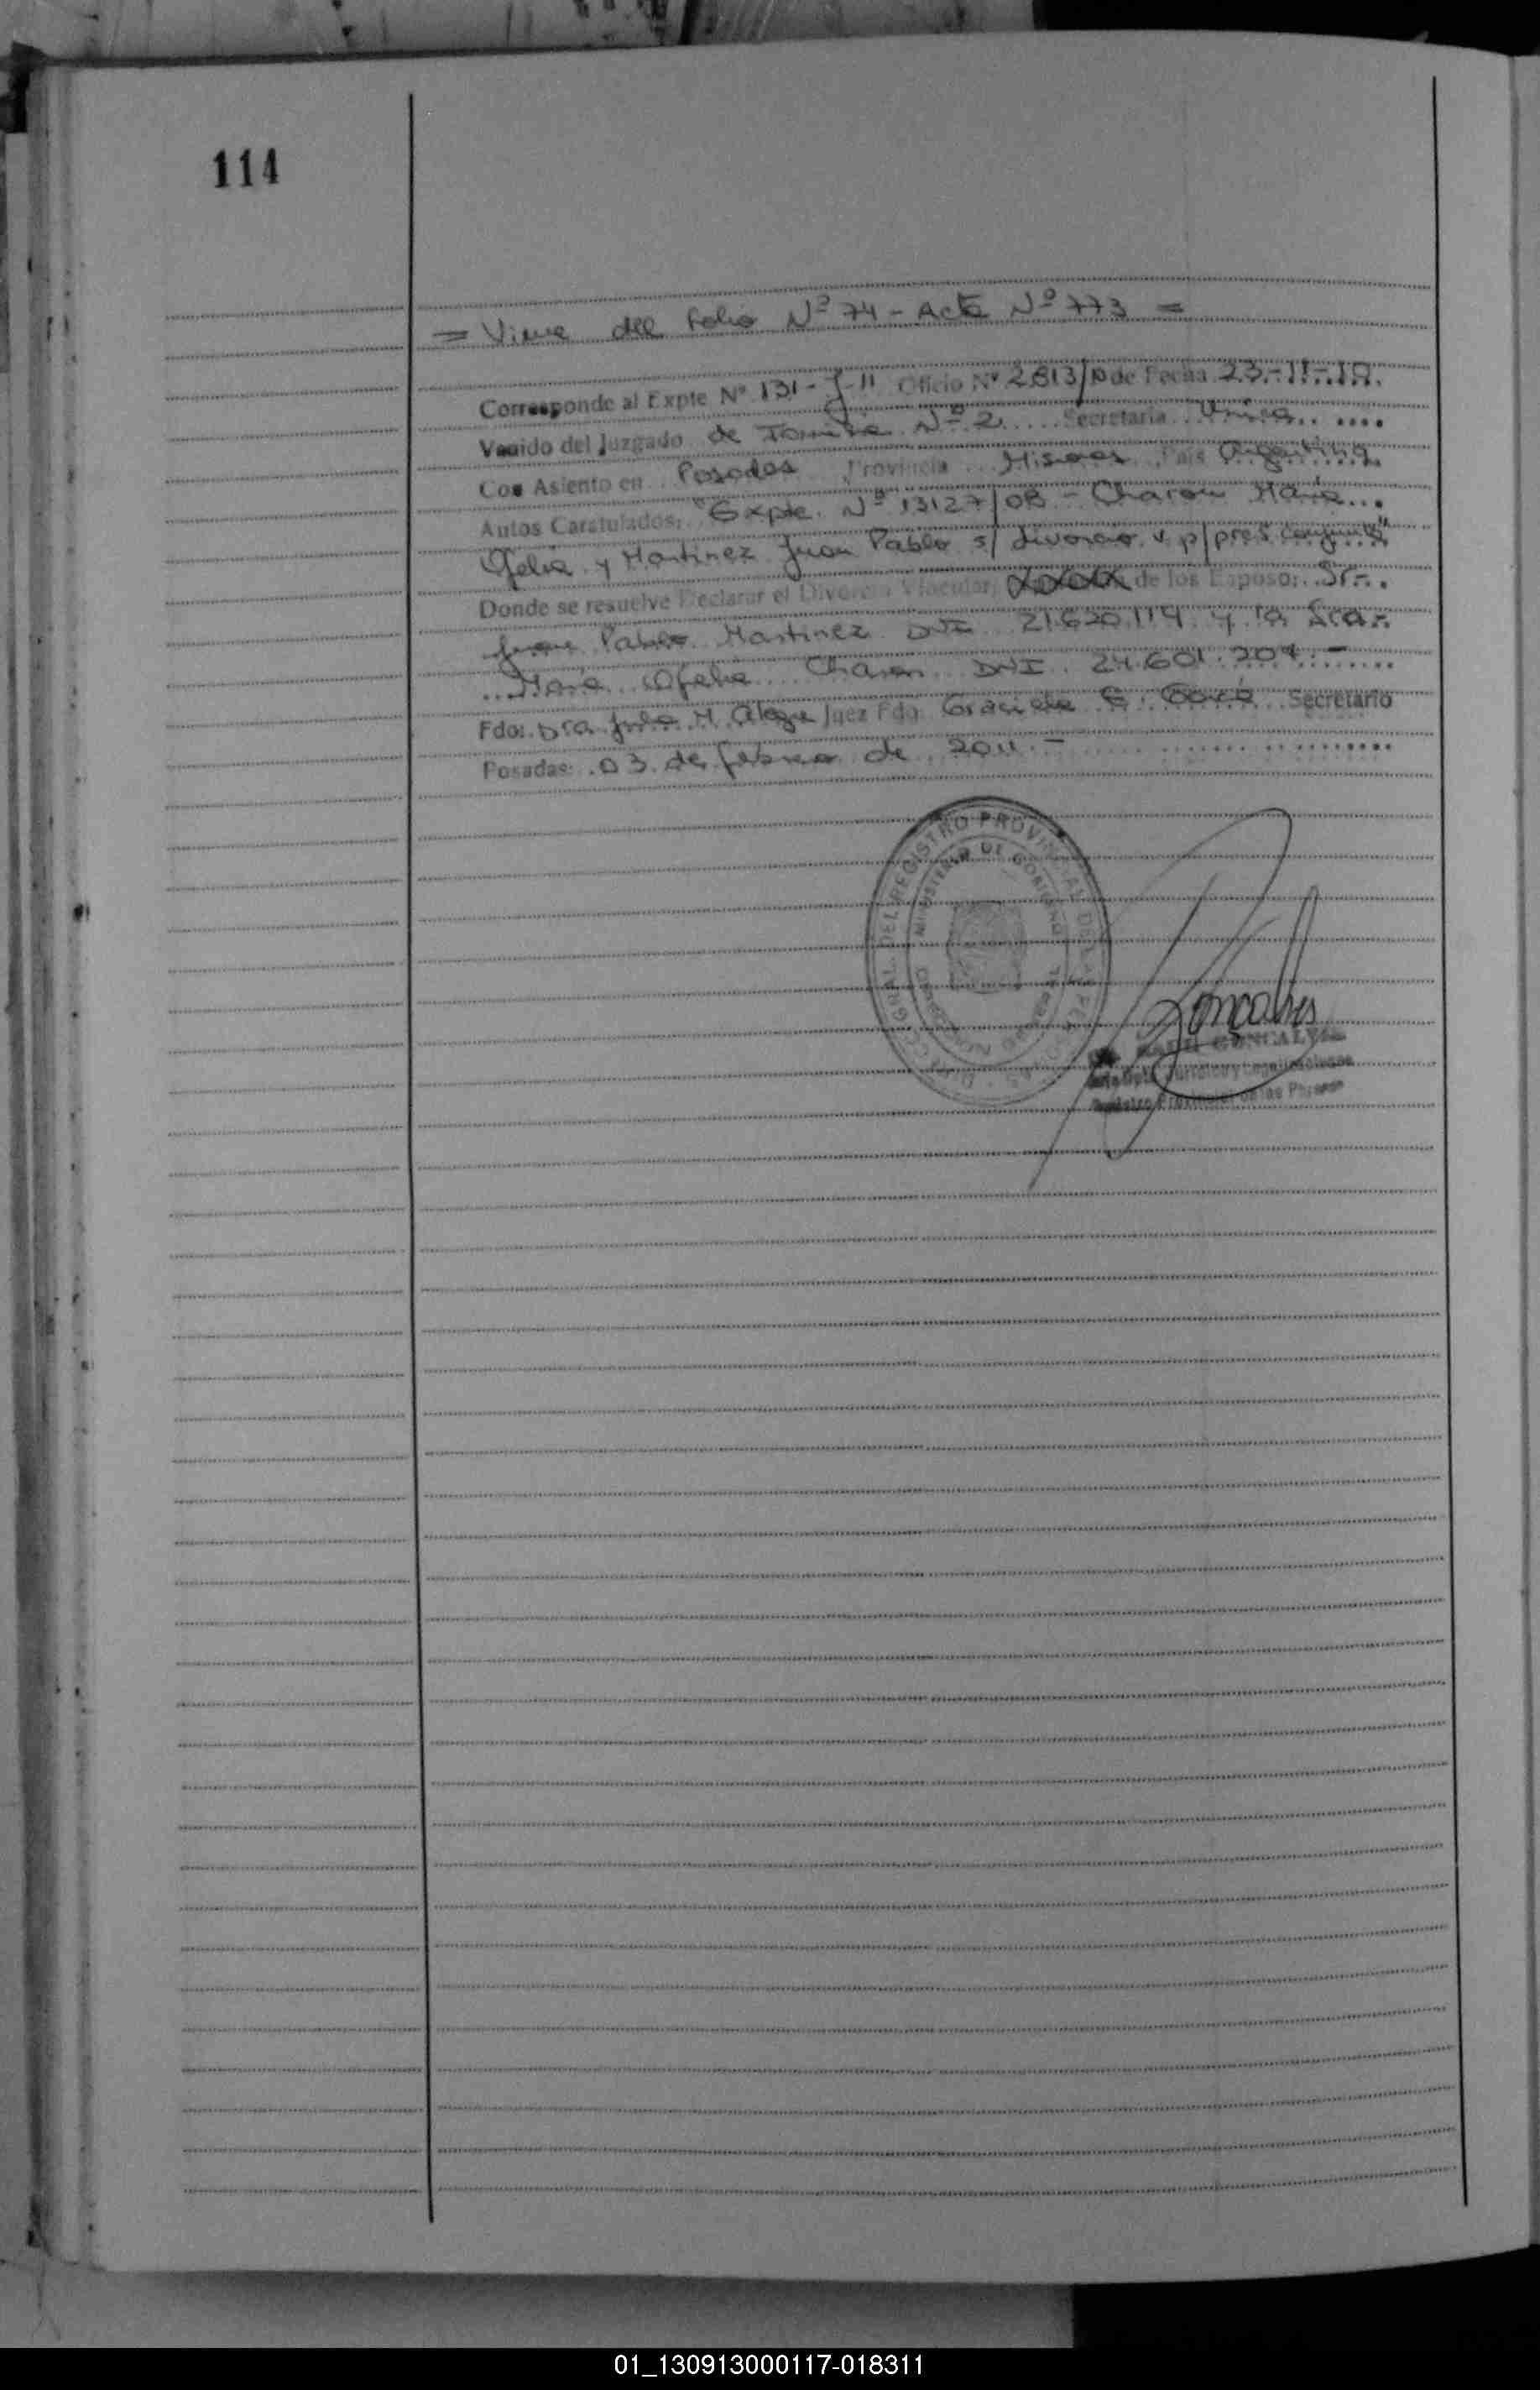 114
= Viene del Folio Nº 74 - Acta Nº 773 =
Corresponde al Expte Nº 131-J-11 Oficio Nº 2813/10 de Fecha 23.-11-.10.
Venido del Juzgado de Familia Nº 2 Secretaria Unica
Con Asiento en Posadas Provincia Misiones Pais Argentina
Autos Caratulados: "Expte. Nº 13127/08 - Charon María
Ofelia y Martinez Juan Pablo s/ divorcio v. p/ pres. conjunta"
Donde se resuelve Declarar el Divorcio Vincular, de los Esposos, Sr.
Juan Pablo Martinez DNI 21.620.119 y la Sra.
María Ofelia Charon DNI. 24.601.204.-
Fdo: Dra. M. Juez Fdo: Graciela E. Secretario
Posadas: 03 de febrero de 2011.-
DIRECC. GRAL. DEL REGISTRO PROVINCIAL DE LAS PERSONAS
MINISTERIO DE GOBIERNO
Goncalves
RAUL GONCALVES
Registro Provincial de las Personas
01_130913000117-018311